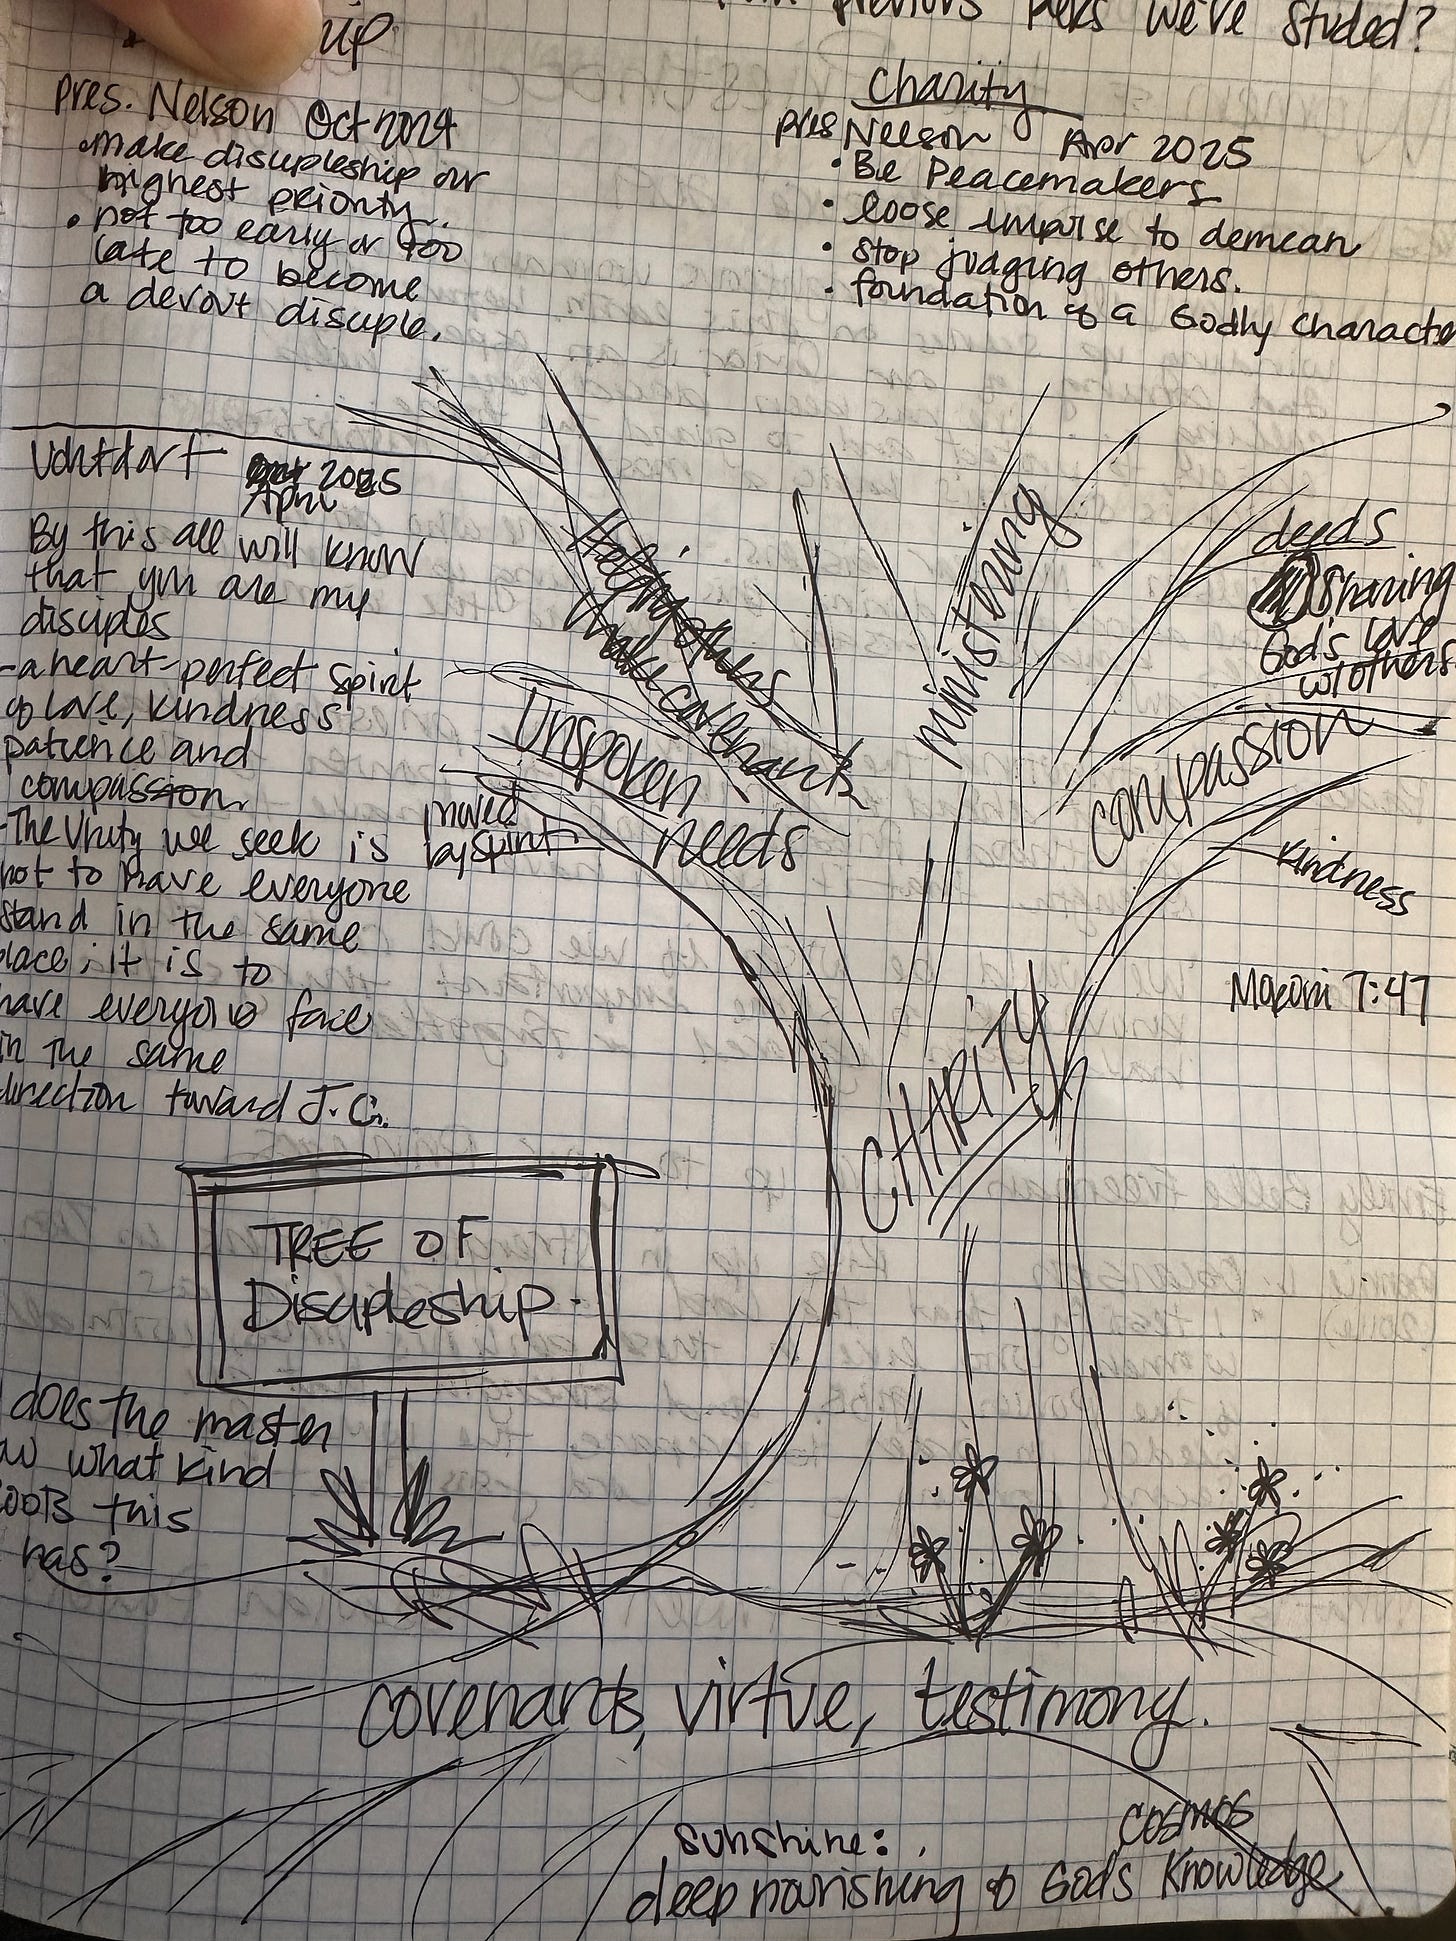 previous talks we've studed?
pres. Nelson Oct 2024
make discipleship our
highest priority..
• not too early or too
late to become
a devout disciple.
Charity
pres Nelson Apr 2025
• Be Peacemakers
• loose impulse to demean
• stop judging others.
• foundation of a Godly Character
Uchtdorf 2025
April
By this all will know
that you are my
disciples
- a heart-perfect spirit
of love, kindness
patience and
compassion
- The Unity we seek is
not to have everyone
stand in the same
place; it is to
have everyone face
in the same
direction toward J.C.
Helping others
make covenants
Unspoken
needs
moved
by spirit
ministering
deeds
Sharing
God's love
w/others
compassion
kindness
Moroni 7:47
CHARITY
TREE OF
Discipleship.
does the master
what kind
this
has?
covenants, virtue, testimony.
sunshine:
cosmos
deep nourishing of God's Knowledge